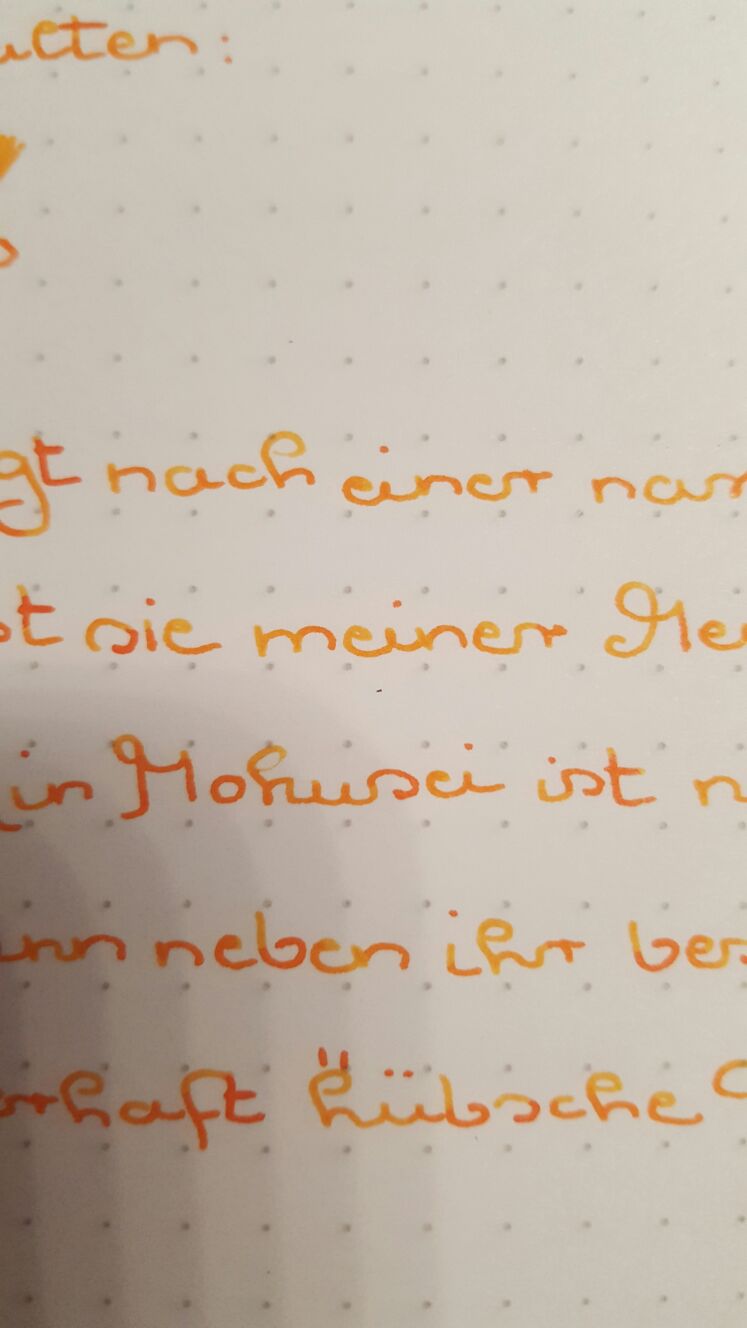 ulten:
gt nach einer nar
st sie meiner Me
in Mokusei ist n
ann neben ihr bes
erhaft "hübsche